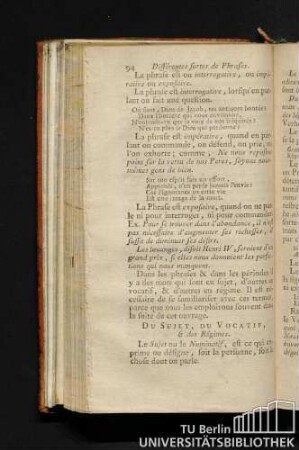 94 Différentes sortes de Phrases.
La phrase est ou interrogative, ou impérative
ou expositive.
La phrase est interrogative, lorsqu'en parlant
on fait une question.
Où sont, Dieu de Jacob, tes antiques bontés?
Dans l'horreur qui nous environne,
N'entends-tu que la voix de nos iniquités?
N'es-tu plus le Dieu qui pardonne?
La phrase est impérative, quand en parlant
on commande, on défend, on prie,
l'on exhorte; comme, Ne nous reposons
point sur la vertu de nos Peres, soyons nous-
mêmes gens de bien.
est une
La Phrase est expositive, quand on ne parle
ni pour interroger, ni pour commander.
Ex. Pour se trouver dans l'abondance, il n'est
pas nécessaire d'augmenter ses richesses, il
suffit de diminuer ses désirs.
Les louanges, disoit Henri IV, seroient d'un
grand prix, si elles nous donnoient les perfections
qui nous manquent.
Dans les phrases & dans les périodes il
y a des mots qui sont en sujet, d'autres en
vocatif, & d'autres en régime. Il est nécessaire
de se familiariser avec ces termes,
parce que nous les emploîrons souvent dans
la suite de cet ouvrage.
DU SUJET, DU VOCATIF,
& des Régimes.
Le Sujet ou le Nominatif, est ce qui exprime
ou désigne, soit la personne, soit la
chose dont on parle.
TU Berlin
UNIVERSITÄTSBIBLIOTHEK